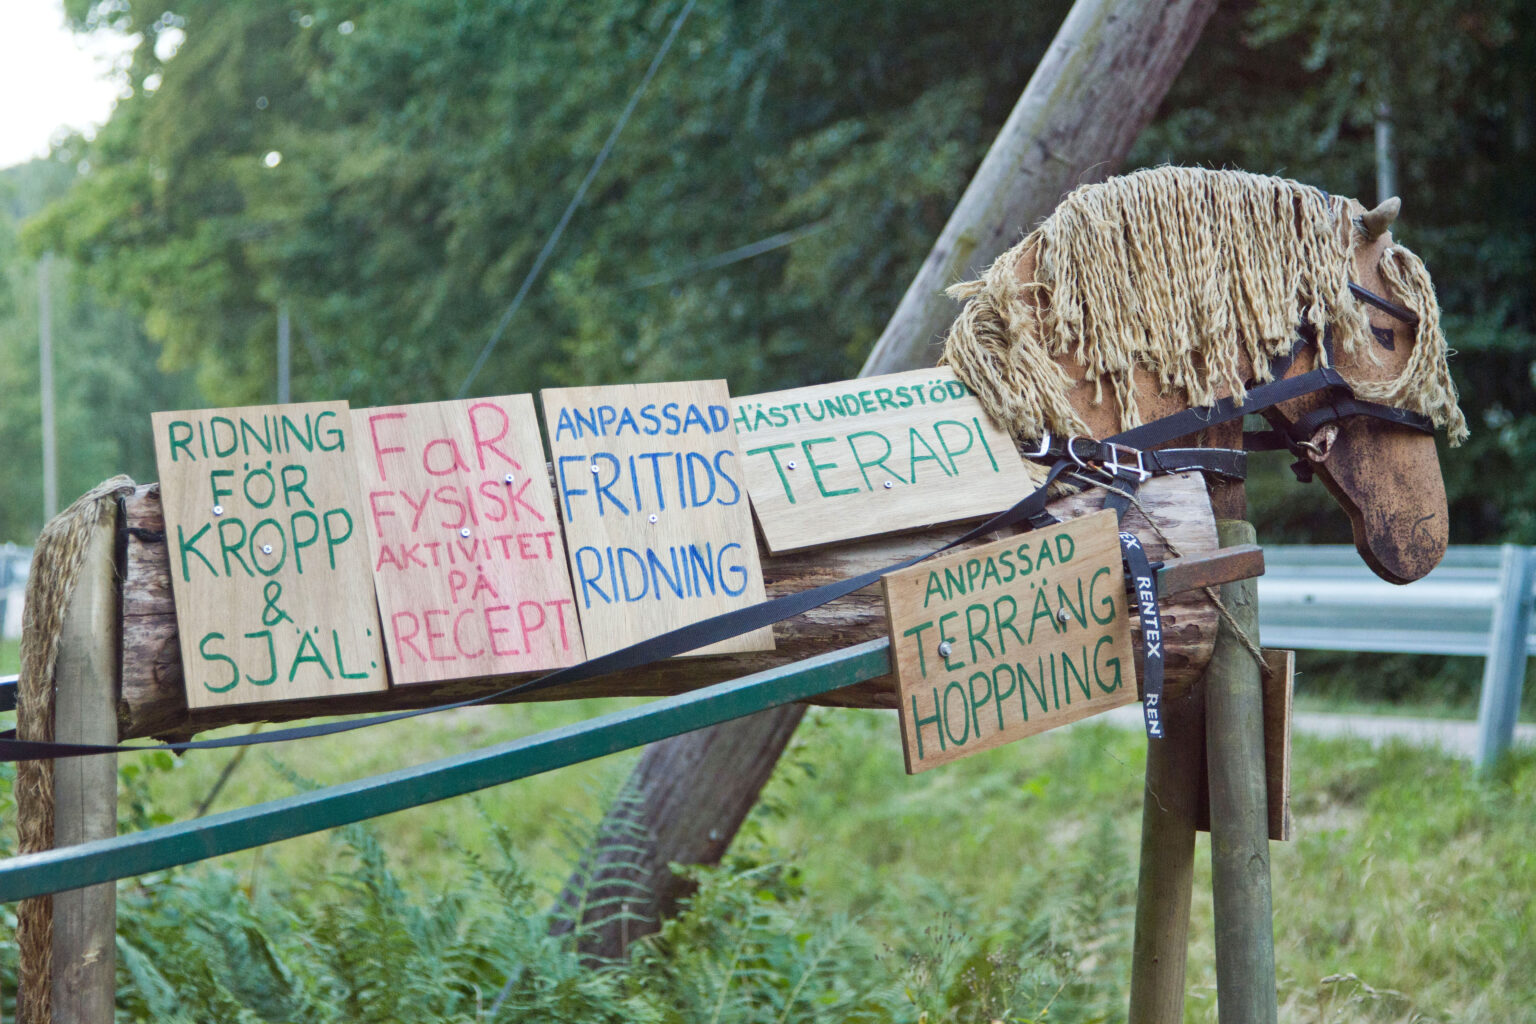 RIDNING
FÖR
KROPP
&
SJÄL:
FaR
FYSISK
AKTIVITET
PÅ
RECEPT
ANPASSAD
FRITIDS
RIDNING
HÄSTUNDERSTÖD
TERAPI
ANPASSAD
TERRÄNG
HOPPNING
EX
RENTEX
REN